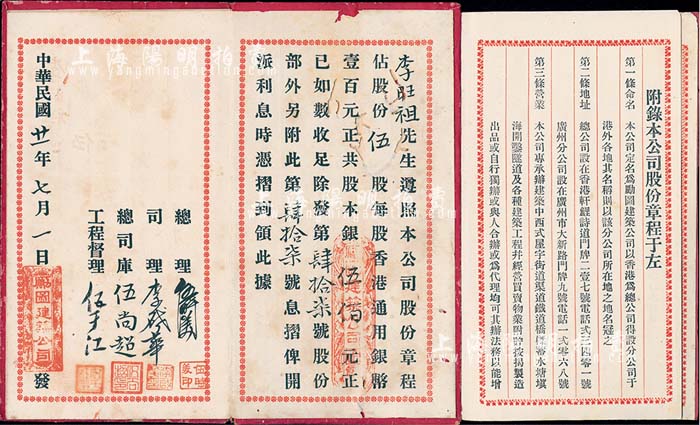 附錄本公司股份章程于左
第一條命名 本公司定名為勵圖建築公司以香港為總公司得設分公司于
港外各地其名稱則以該分公司所在地之地名冠之
第二條地址 總公司設在香港軒鯉詩道門牌二壹七號電話式
廣州分公司設在廣州市大新路門牌九號電話一式零六八號
第三條營業 本公司專承辦建築中西式屋宇街道渠道鐵道橋
海開鑿隧道及各種建築工程并經營買賣物業附
出品或自行獨辦或與人合辦或為代理均可其辦法務以能增
李旺祖先生遵照本公司股份章程
佔股份伍股每股香港通用銀幣
壹百元正共股本銀伍佰元正
已如數收足除發第肆拾柒號股份
部外另附此第肆拾柒號息摺俾開
派利息時憑摺到領此據
總理
司理 李發華
總司庫 伍尚超
工程督理 伍于江
中華民國廿一年七月1日
勵圖建築公司
發
上海陽明拍賣
www.yangmingauction.com